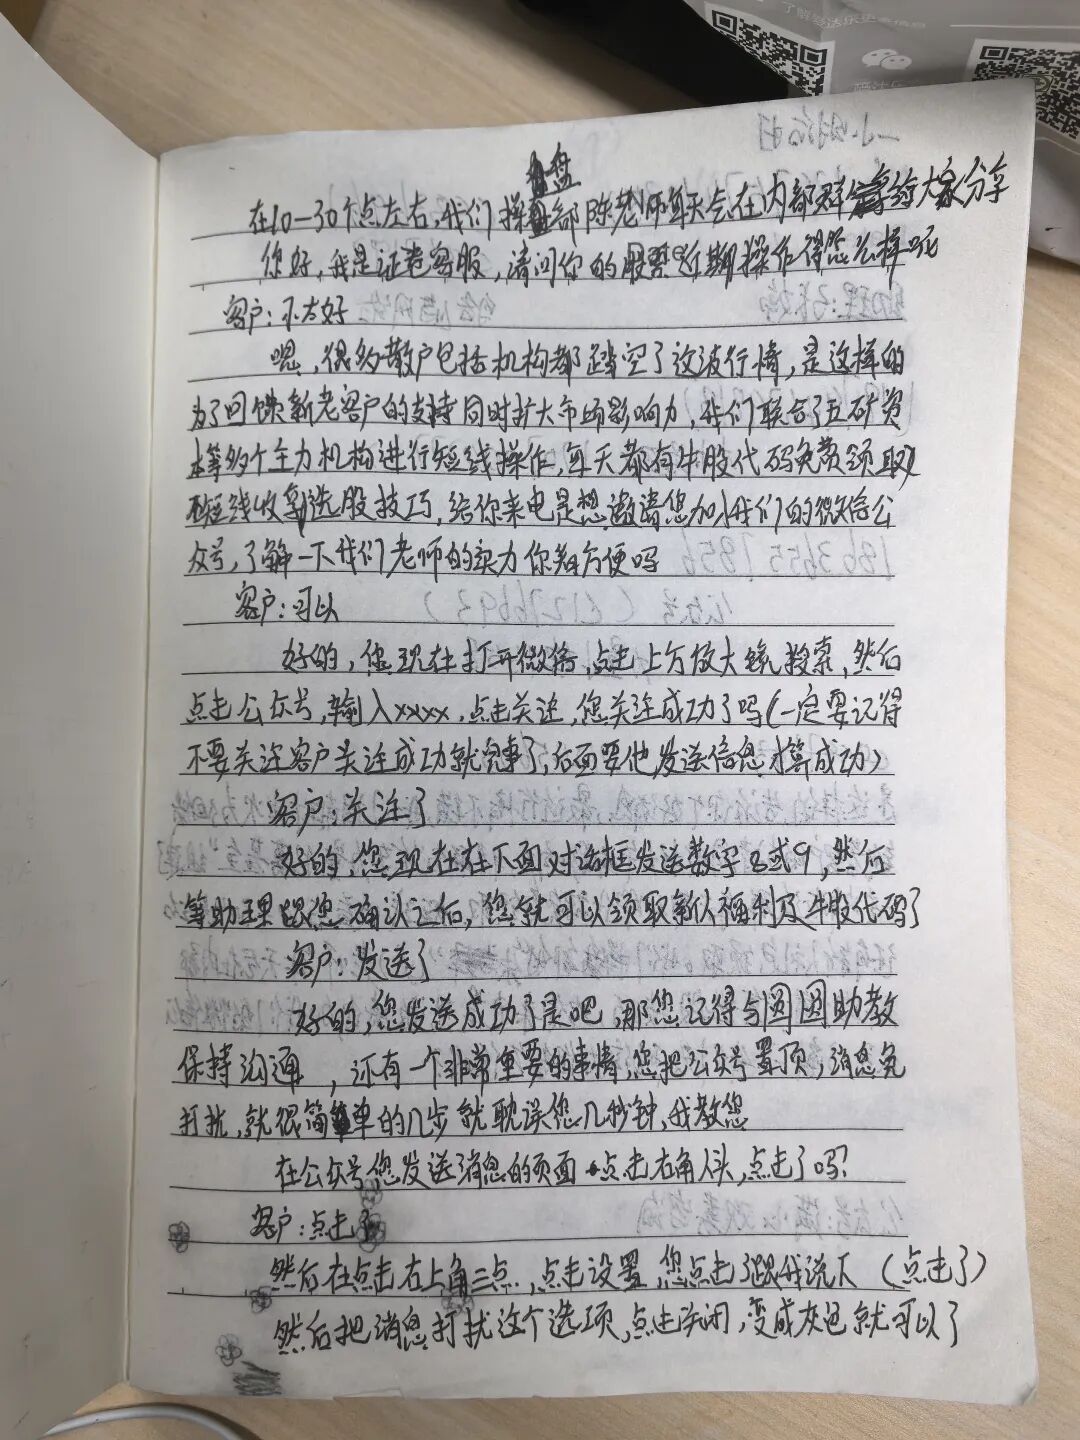 了解多法乐更多信息
一小时治明
盘
在10-30个点左右,我们操盘部陈老师每天会在内部群给大家分享
你好,我是证卷客服,请问你的股票近期操作得怎么样呢
客户:不太好
嗯,很多散户包括机构都踏空了这波行情,是这样的
为了回馈新老客户的支持同时扩大市场影响力,我们联合了五矿资
本等多个主力机构进行短线操作,每天都有牛股代码免费领取
短线收割选股技巧,给你来电是想邀请您加入我们的微信公
众号,了解一下我们老师的实力你看方便吗
客户:可以
好的,您现在打开微信,点击上方放大镜搜索,然后
点击公众号,输入xxxx,点击关注,您关注成功了吗(一定要记得
不要关注客户关注成功就完事了,后面要他发送信息才算成功)
客户:关注了
好的,您现在在下面对话框发送数字8或9,然后
等助理跟您确认之后,您就可以领取新人福利及牛股代码了
客户:发送了
好的,您发送成功了是吧,那您记得与圆圆助教
保持沟通,还有一个非常重要的事情,您把公众号置顶,消息免
打扰,就很简单的几步就耽误您几秒钟,我教您
在公众号您发送消息的页面点击右角人头,点击了吗?
客户:点击了
然后在点击右上角三点,点击设置,您点击了跟我说下(点击了)
然后把消息打扰这个选项,点击关闭,变成灰色就可以了